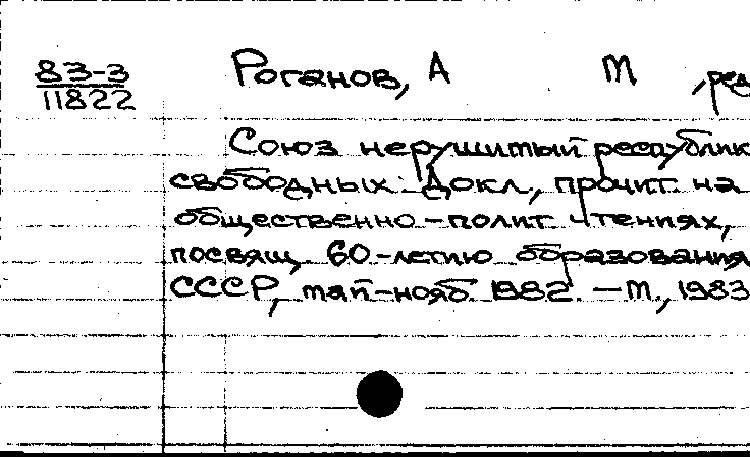 83-3
11822
Роганов, А М , ред
Союз нерушимый республик
свободных: Докл., прочит. на
общественно-полит. чтениях,
посвящ. 60-летию образования
СССР, май-нояб. 1982. — М., 1983